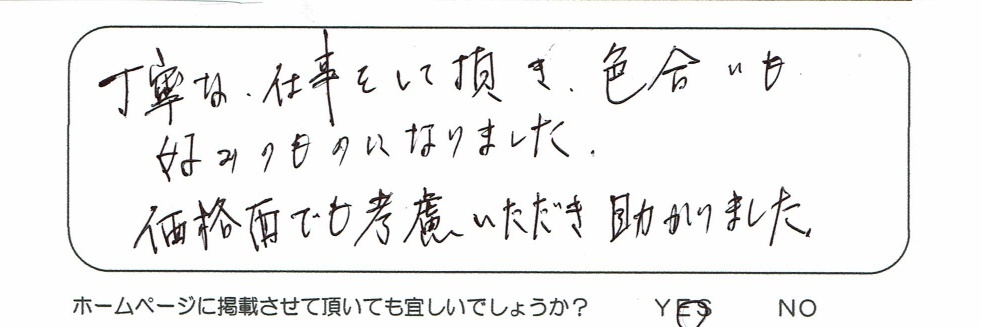 丁寧な、仕事をして頂き、色合いも
好みのものになりました。
価格面でも考慮いただき助かりました。
ホームページに掲載させて頂いても宜しいでしょうか？ YES NO